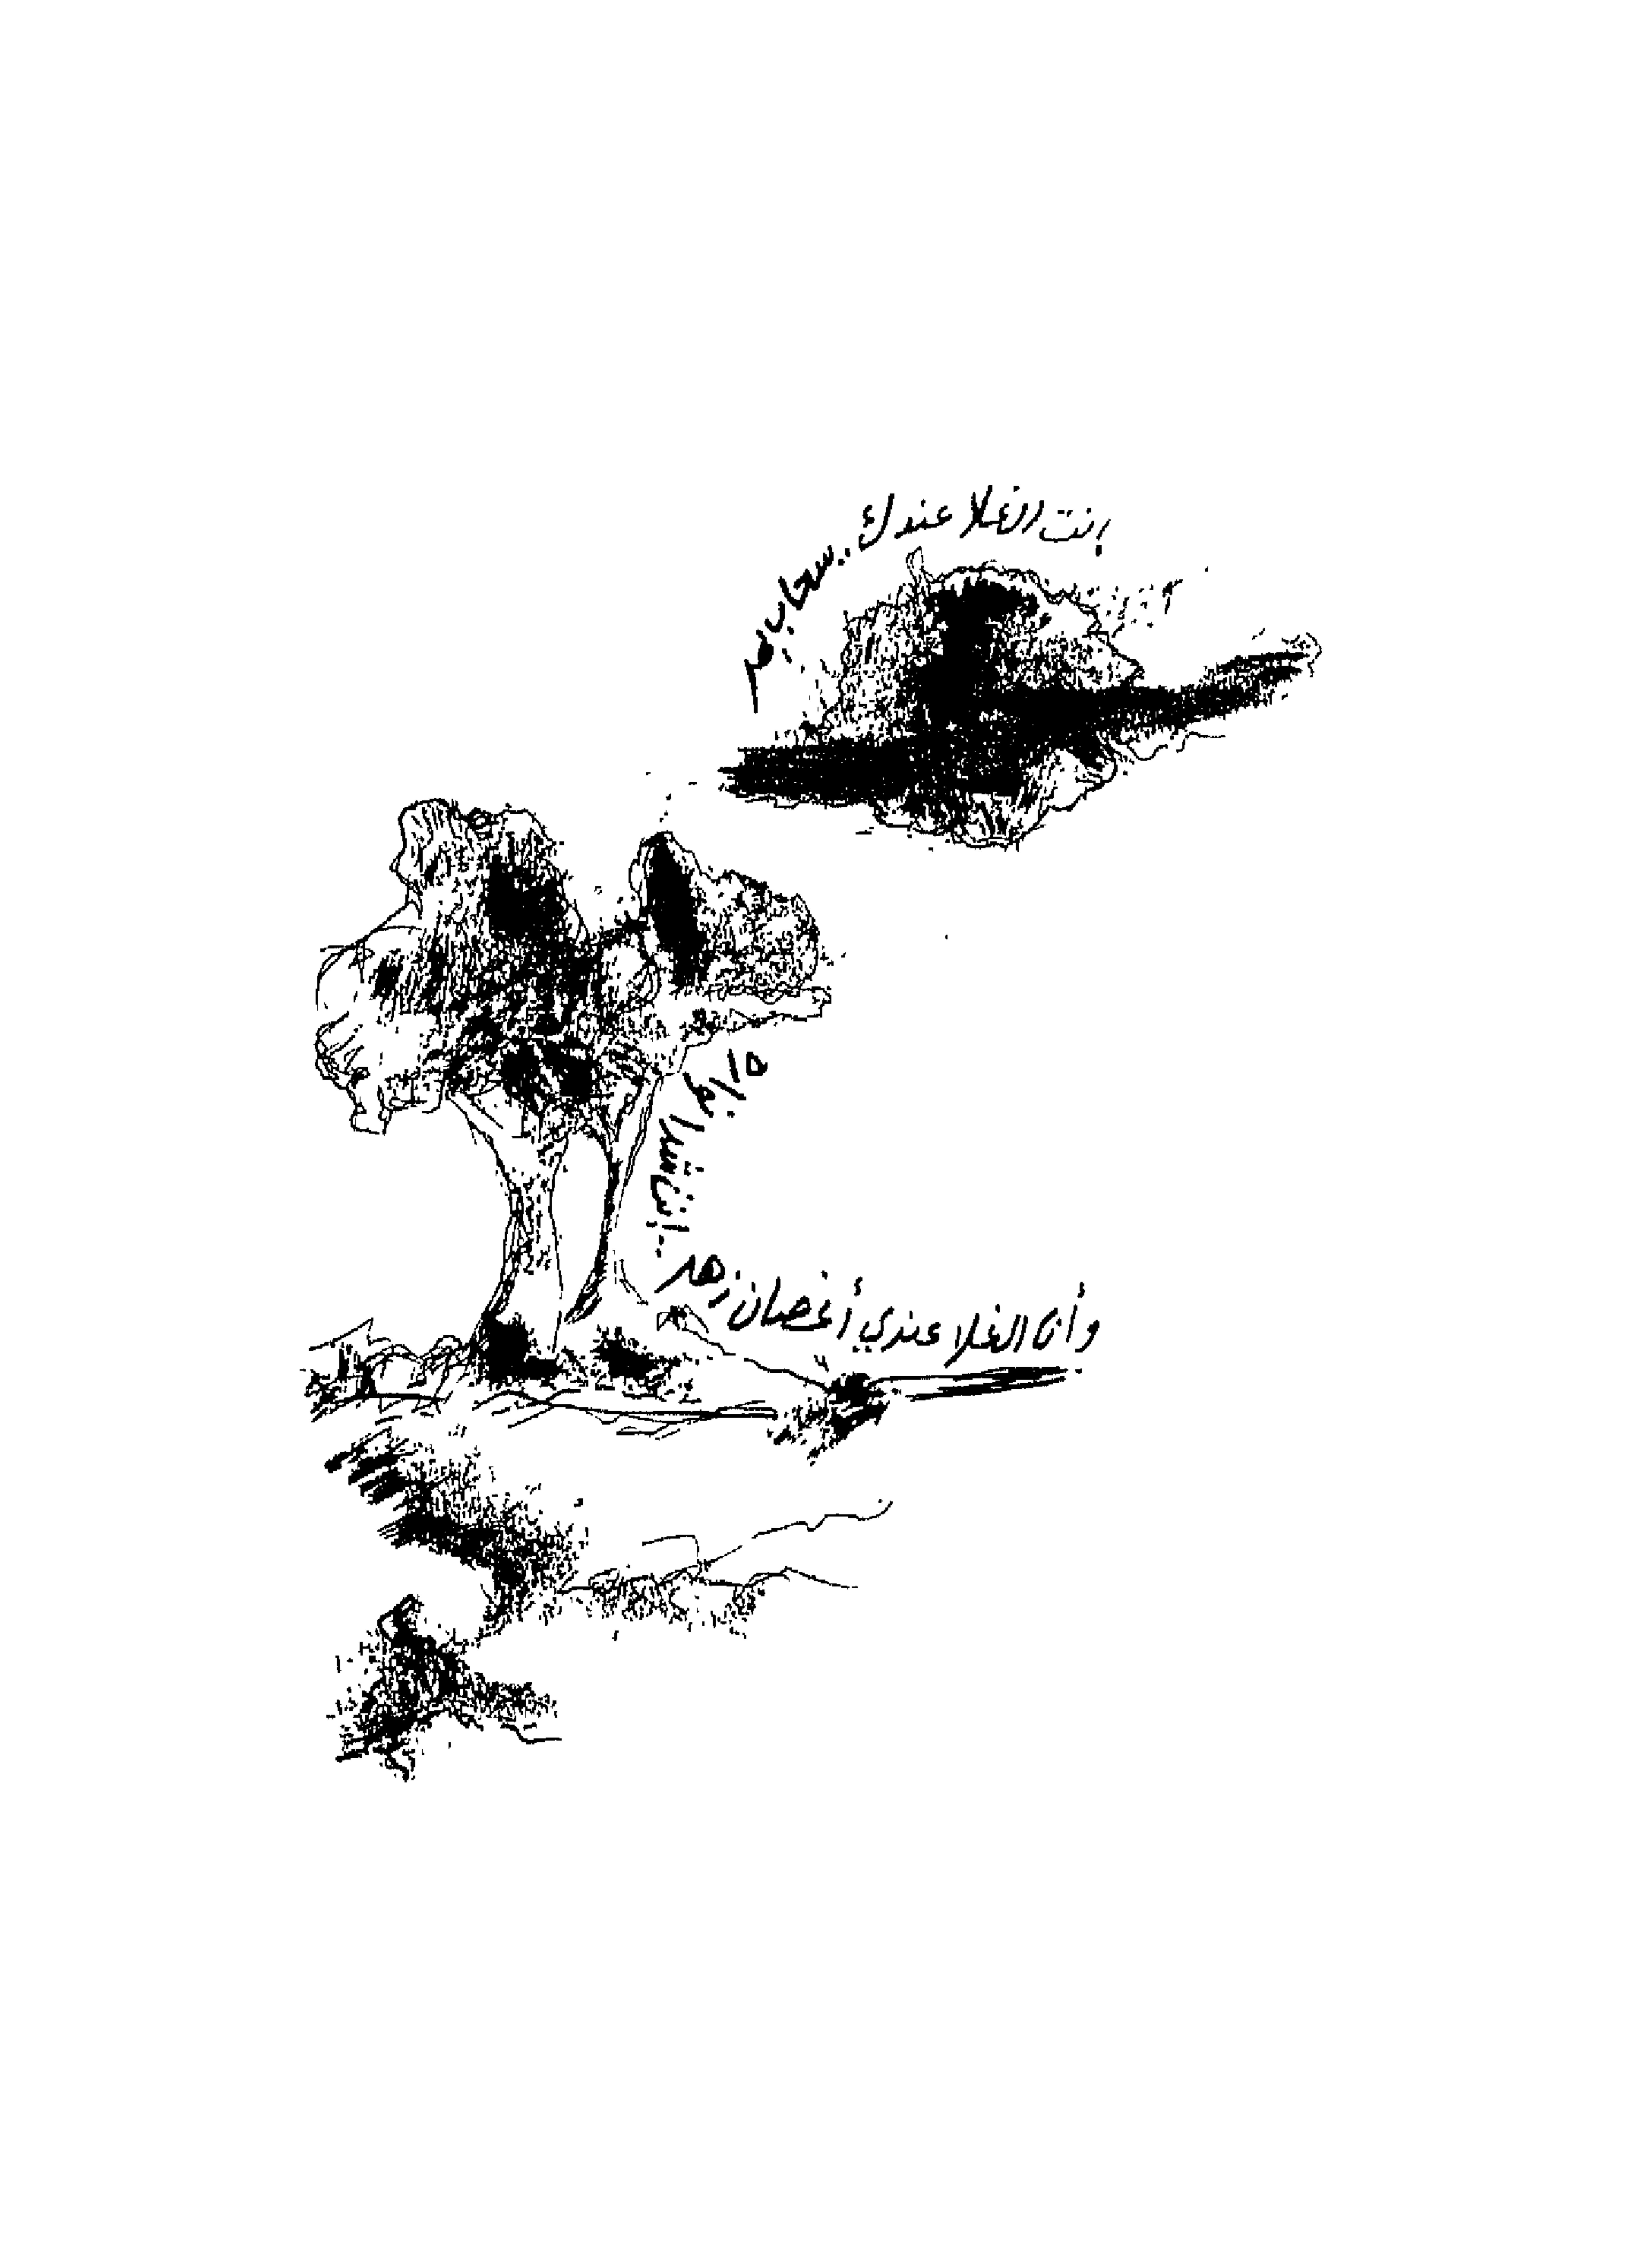 إنت الغلا عندك.. سحاب يمر
وأنا الغلا عندي أغصان زهر
.. إنت